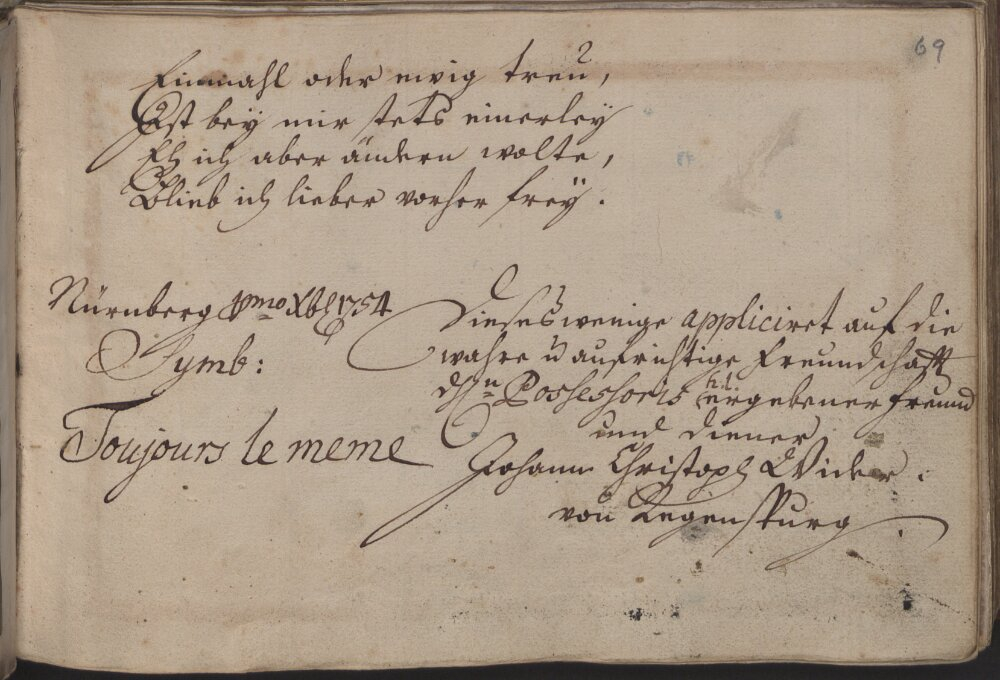 69
Einmahl oder ewig treu,
Ist bey mir stets einerley
Eh ich aber ändern wolte,
Blieb ich lieber vorher frey.
Nürnberg 1mo Xbr 1754
Symb:
Toujours le meme
Dieses wenige appliciret auf die
wahre u aufrichtige Freundschafft
Possessoris h. l. ergebener freund
und diener
Johann Christoph Wider.
von Regenspurg